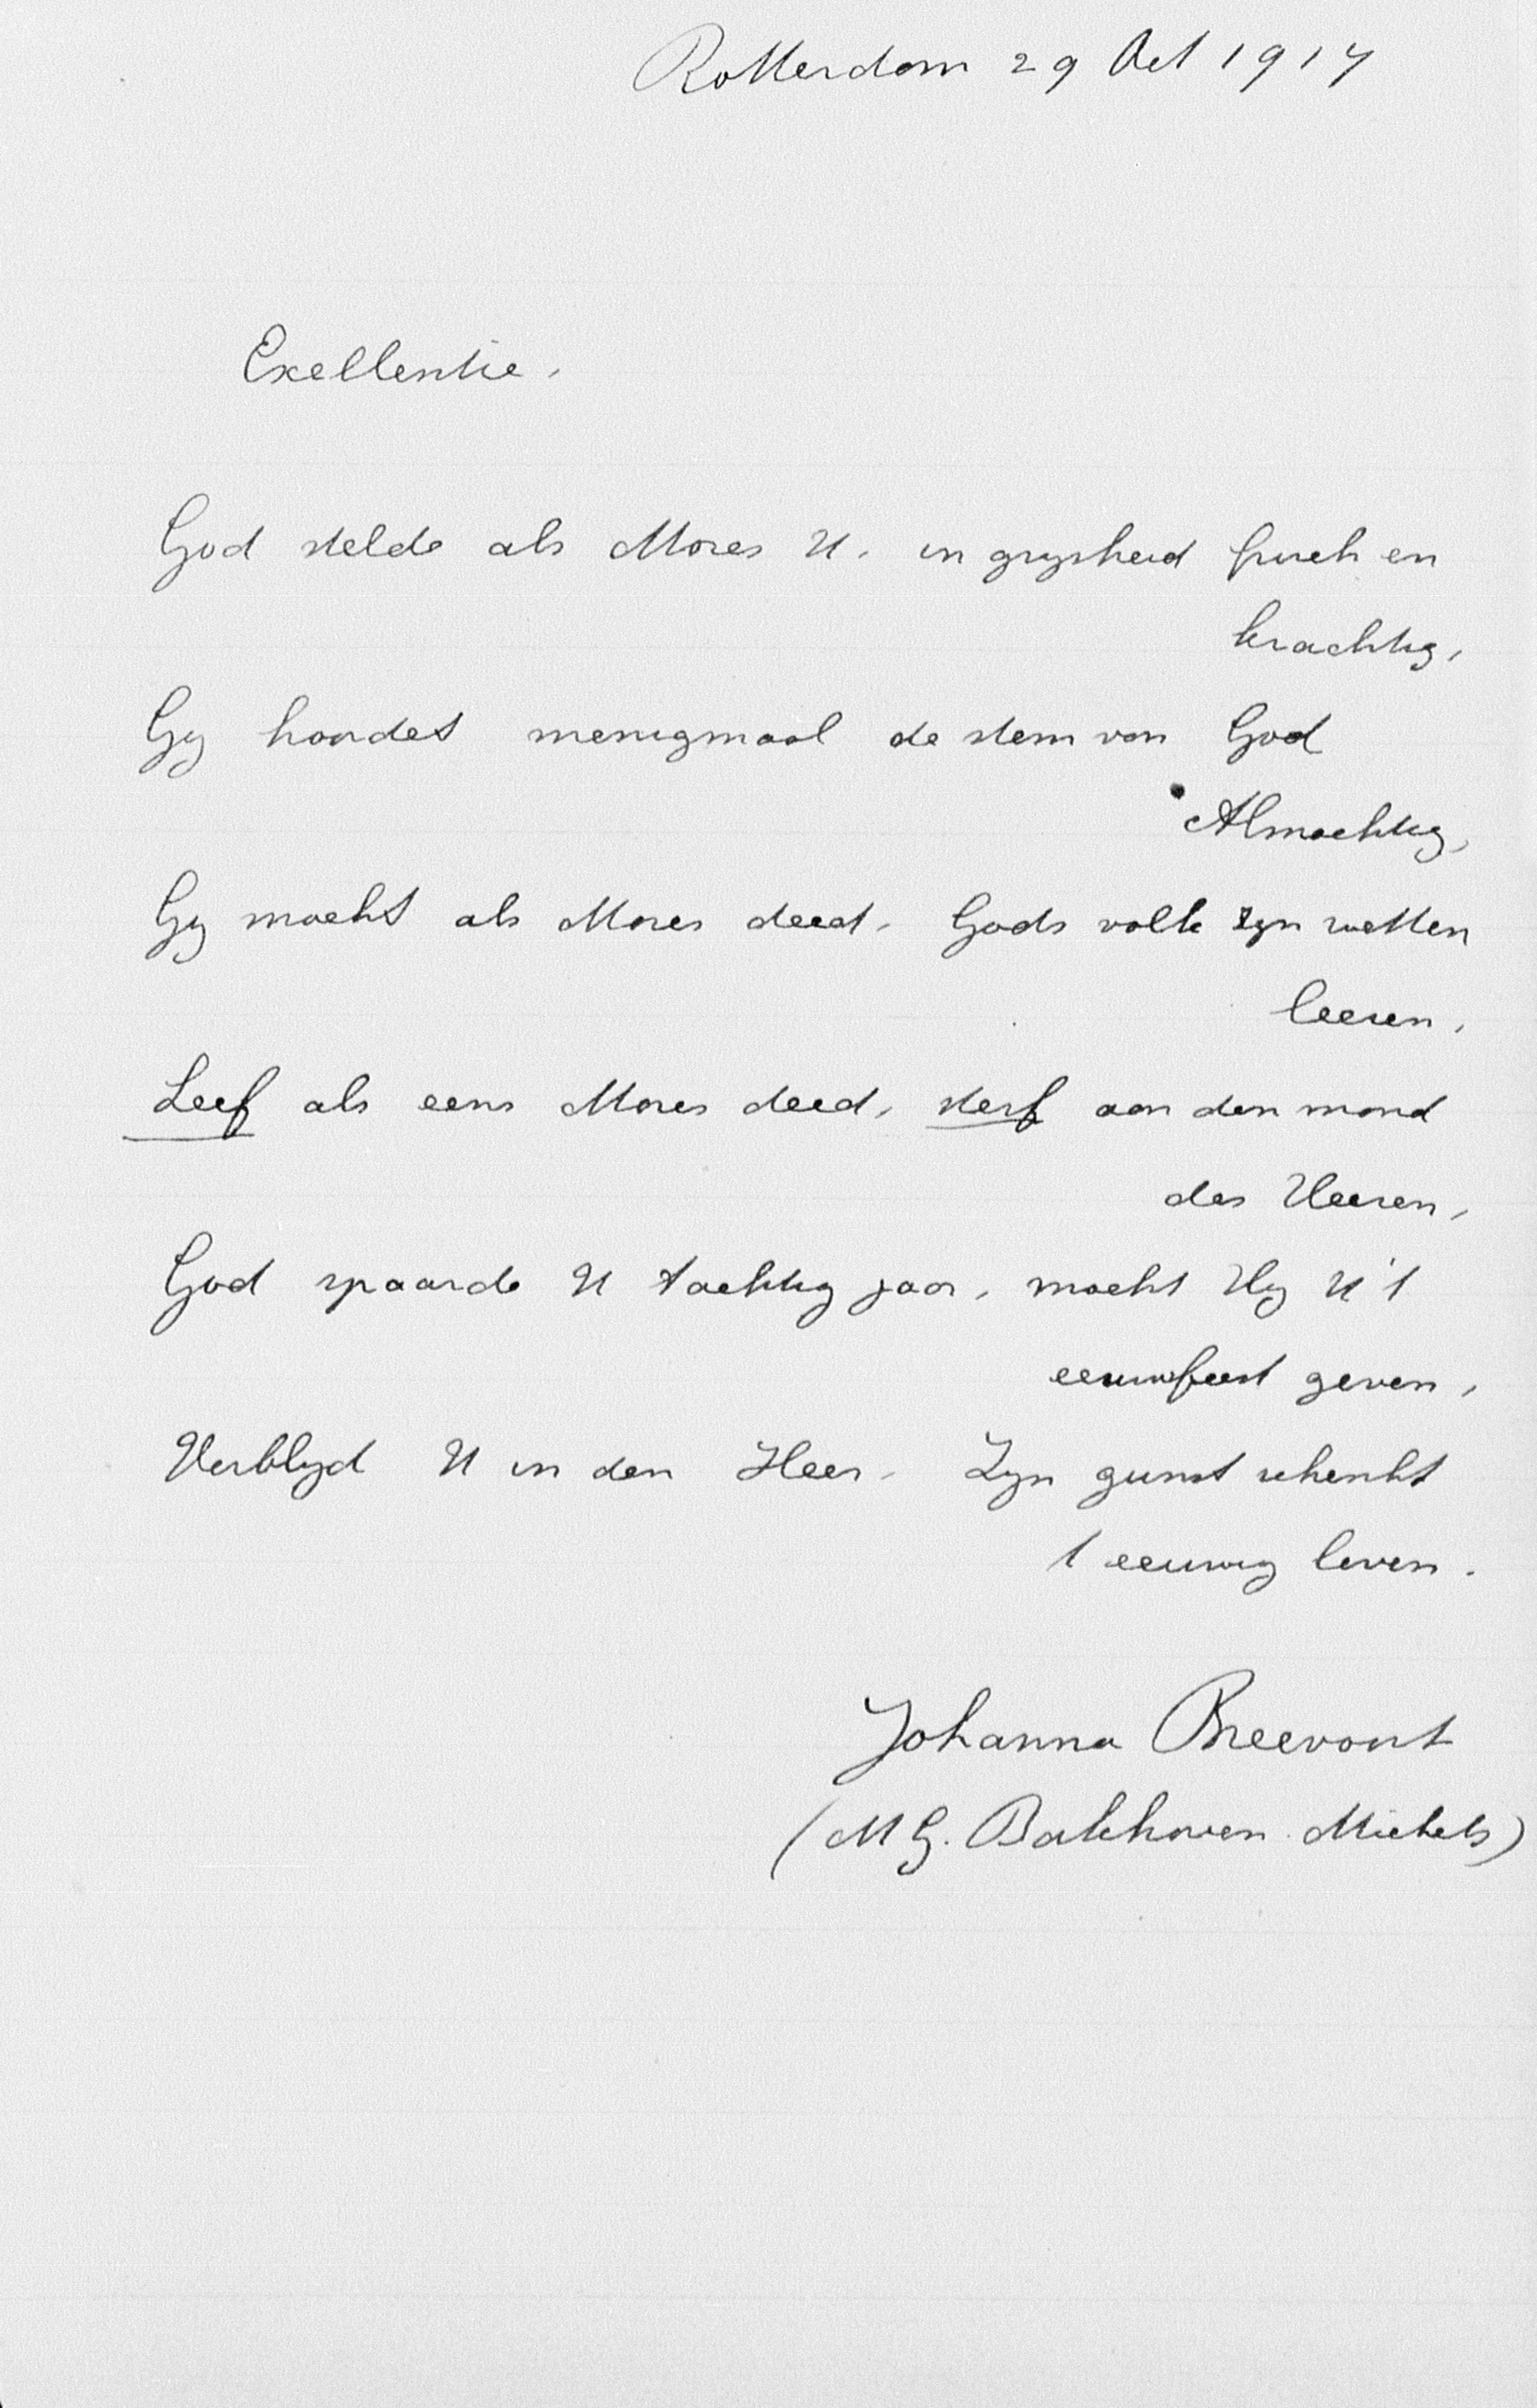 Rotterdam 29 Oct 1917
Exellentie,
God stelde als Mozes U, in grysheid frisch en
krachtig,
Gy hoordet menigmaal de stem van God
Almachtig,
Gy mocht als Mozes deed, Gods volk zyn wetten
leeren,
Leef als eens Mozes deed, sterf aan den mond
des Heeren,
God spaarde U tachtig jaar, mocht Hy U 't
eeuwfeest geven,
Verblyd U in den Heer, Zyn gunst schenkt
't eeuwig leven.
Johanna Breevoort
(M G. Bakhoven Michels)